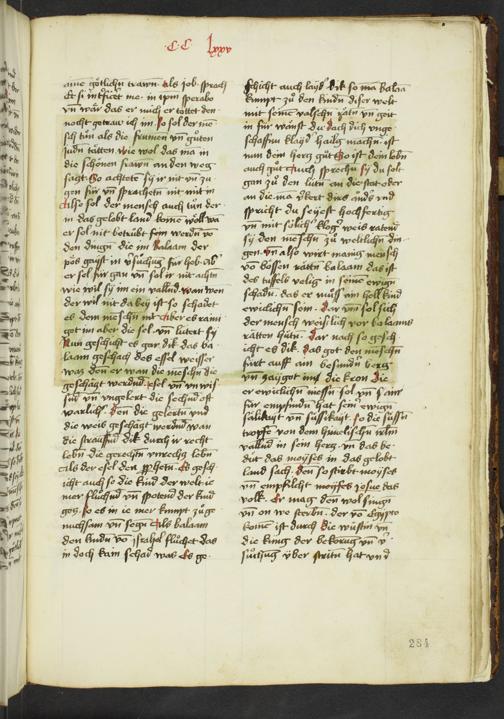 CC lxxv
aine götlichn trawn als job sprach
Et si interficet me in ipm sperabo
vn̄ wär das er mich ertöttet den
nocht getraw ich im So sol der me
sch tůn als die frumen vn̄ gůten
judn tätten wie wol das man in
die schönen frawn an den weg
satzt So achtote sÿ ir nit vn̄ zu
gen für vn̄ sprachetn nit mit in
Also sol der mensch auch tůn der
in das gelobt land komē wöll wā
er sol nit betrübt sein werdn vō
den dingn die im Balaam der
pös gayst in
er sol für gan vn̄ sol ir nit achtn
wie wil sÿ im ein vallnd wan wen
der wil nit da beÿ ist so schadet
es dem menschn nit Aber es raint
got im aber die sel vn̄ lutert sÿ
Nun geschicht es gar dik das ba
laam geschach des essel weisser
was den er wan die menschn die
geschätzt werdnd esel vn̄ vnwis
snd vn̄ vngelert die sechnd oft
warlich den die gelertn vnd
die weis geschätzt werdnd wan
die strauffnd dik durch ir recht
lebn die gerechtn vnrechtz lebn
als der esel den pphetn Es gesch
icht auch so die kind der welt ie
mer fluchnd vn̄ spotend der kind
gotz so es in ie mer kumpt zů ge
nuchsam vn̄ segn Als balaam
den kindn vō israhel flůchet das
in doch kain schad was Es ge
schicht auch layd dik so man balaa
kumpt zů den kindn diser welt
mit seinē valschen rätn vn̄ geit
in für wänst du dach dich vnge
schaffnu klayd hailig machn ist
nun dein hertz gůt So ist dein lebn
auch gůt Auch sprechn sÿ du solt
gan zů den lütn an die stat oder
an die märkt dirs andrs vnd
spricht du seÿest hochfertig
vn̄ mit sölich klog weis ratend
sÿ den menschn zů weltlichn din
gen vn̄ also wirt manig mensch
vō bössen rättn balaam das ist
des tüffels velig in seinē ewign
schadn das er můss ain hell kind
ewiclichn sein dar vm̄ sol sich
der mensch weislich vor balaams
rätten hütn Dar nach so gesch
icht es dik das got den menschn
fürt auff ain besundn berg
vn̄ zaÿgot ins die kron die
er ewiclichn niessn sol vn̄ sam
für empfindn hat sein ewign
sälikayt vn̄ süssikayt so die süssn
tropfē von dem himelischn irlm̄
vallnd in sein hertz vn̄ das be
düt das moÿses in das gelobt
land sach den so stirbt moÿses
vn̄ empfilcht moÿses josue das
volk Er mag den wol singn
vn̄ on we sterbn der vō Egipto
komē ist durch die wüstin vn̄
die küng der bekorug vn̄ v̄
sůchug v̈ber stritn hat vnd
284